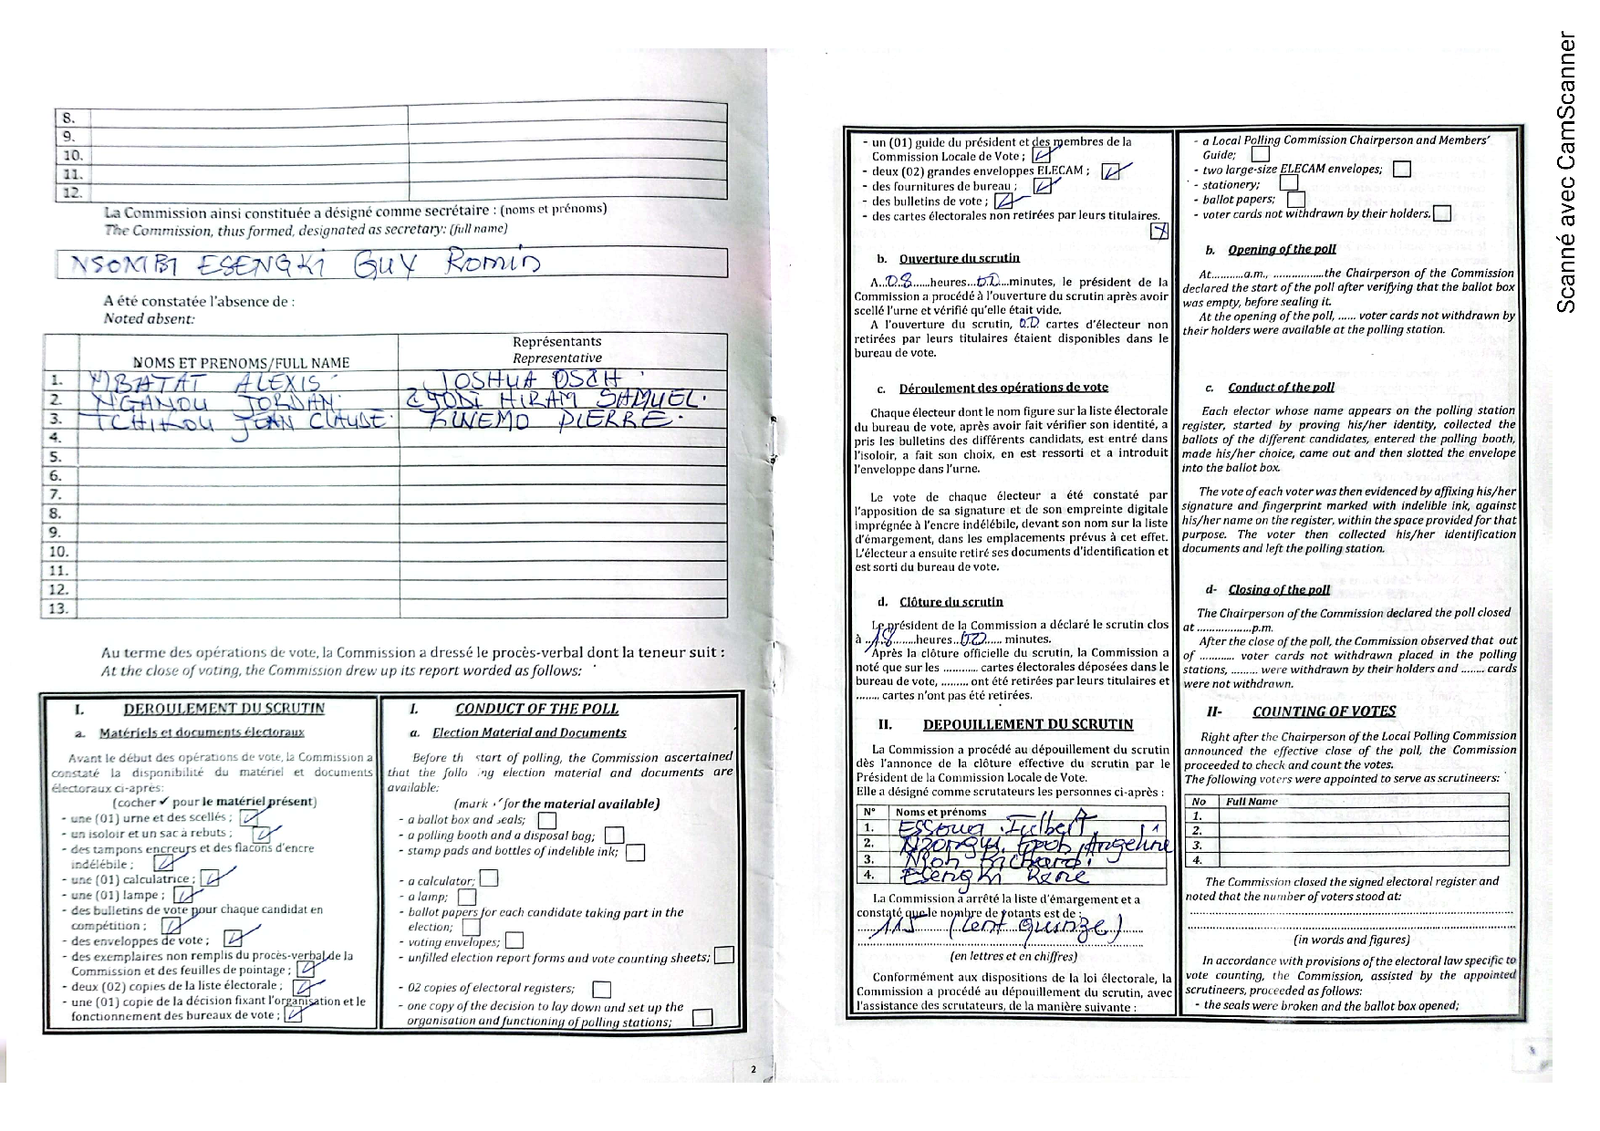 8.
9.
10.
11.
12.
La Commission ainsi constituée a désigné comme secrétaire : (noms et prénoms)
The Commission, thus formed, designated as secretary: (full name)
NSOMBI ESENGKI GUY ROMIN
A été constatée l'absence de :
Noted absent:
NOMS ET PRENOMS/FULL NAME
Représentants
Representative
1. MBATAT ALEXIS JOSHUA OSIH
2. NGANOU JORDAN HIRAM SAMUEL
3. TCHIKOU JEAN CLAUDE KWEMO PIERRE
4.
5.
6.
7.
8.
9.
10.
11.
12.
13.
Au terme des opérations de vote, la Commission a dressé le procès-verbal dont la teneur suit :
At the close of voting, the Commission drew up its report worded as follows:
I. DEROULEMENT DU SCRUTIN
a. Matériels et documents électoraux
Avant le début des opérations de vote, la Commission a
constaté la disponibilité du matériel et documents
électoraux ci-après:
(cocher ✓ pour le matériel présent)
- une (01) urne et des scellés ;
- un isoloir et un sac à rebuts ;
- des tampons encreurs et des flacons d'encre
indélébile ;
- une (01) calculatrice ;
- une (01) lampe ;
- des bulletins de vote pour chaque candidat en
compétition ;
- des enveloppes de vote ;
- des exemplaires non remplis du procès-verbal de la
Commission et des feuilles de pointage ;
- deux (02) copies de la liste électorale ;
- une (01) copie de la décision fixant l'organisation et le
fonctionnement des bureaux de vote ;
I. CONDUCT OF THE POLL
a. Election Material and Documents
Before th start of polling, the Commission ascertained
that the follo ng election material and documents are
available:
(mark ✓ for the material available)
- a ballot box and seals;
- a polling booth and a disposal bag;
- stamp pads and bottles of indelible ink;
- a calculator;
- a lamp;
- ballot papers for each candidate taking part in the
election;
- voting envelopes;
- unfilled election report forms and vote counting sheets;
- 02 copies of electoral registers;
- one copy of the decision to lay down and set up the
organisation and functioning of polling stations;
2
- un (01) guide du président et des membres de la
Commission Locale de Vote ;
- deux (02) grandes enveloppes ELECAM ;
- des fournitures de bureau ;
- des bulletins de vote ;
- des cartes électorales non retirées par leurs titulaires.
b. Ouverture du scrutin
A..08......heures..00...minutes, le président de la
Commission a procédé à l'ouverture du scrutin après avoir
scellé l'urne et vérifié qu'elle était vide.
A l'ouverture du scrutin, 00 cartes d'électeur non
retirées par leurs titulaires étaient disponibles dans le
bureau de vote.
c. Déroulement des opérations de vote
Chaque électeur dont le nom figure sur la liste électorale
du bureau de vote, après avoir fait vérifier son identité, a
pris les bulletins des différents candidats, est entré dans
l'isoloir, a fait son choix, en est ressorti et a introduit
l'enveloppe dans l'urne.
Le vote de chaque électeur a été constaté par
l'apposition de sa signature et de son empreinte digitale
imprégnée à l'encre indélébile, devant son nom sur la liste
d'émargement, dans les emplacements prévus à cet effet.
L'électeur a ensuite retiré ses documents d'identification et
est sorti du bureau de vote.
d. Clôture du scrutin
Le président de la Commission a déclaré le scrutin clos
à ..18......heures..00...... minutes.
Après la clôture officielle du scrutin, la Commission a
noté que sur les ........... cartes électorales déposées dans le
bureau de vote, ......... ont été retirées par leurs titulaires et
........ cartes n'ont pas été retirées.
II. DEPOUILLEMENT DU SCRUTIN
La Commission a procédé au dépouillement du scrutin
dès l'annonce de la clôture effective du scrutin par le
Président de la Commission Locale de Vote.
Elle a désigné comme scrutateurs les personnes ci-après :
N° Noms et prénoms
1. Essoua Fulbert
2. Angeline
3. Richard
4. Esengki Rene
La Commission a arrêté la liste d'émargement et a
constaté que le nombre de votants est de :
115 (Cent quinze)
(en lettres et en chiffres)
Conformément aux dispositions de la loi électorale, la
Commission a procédé au dépouillement du scrutin, avec
l'assistance des scrutateurs, de la manière suivante :
- a Local Polling Commission Chairperson and Members'
Guide;
- two large-size ELECAM envelopes;
- stationery;
- ballot papers;
- voter cards not withdrawn by their holders.
b. Opening of the poll
At...........a.m., ..................the Chairperson of the Commission
declared the start of the poll after verifying that the ballot box
was empty, before sealing it.
At the opening of the poll, ...... voter cards not withdrawn by
their holders were available at the polling station.
c. Conduct of the poll
Each elector whose name appears on the polling station
register, started by proving his/her identity, collected the
ballots of the different candidates, entered the polling booth,
made his/her choice, came out and then slotted the envelope
into the ballot box.
The vote of each voter was then evidenced by affixing his/her
signature and fingerprint marked with indelible ink, against
his/her name on the register, within the space provided for that
purpose. The voter then collected his/her identification
documents and left the polling station.
d- Closing of the poll
The Chairperson of the Commission declared the poll closed
at ..................p.m.
After the close of the poll, the Commission observed that out
of ............ voter cards not withdrawn placed in the polling
stations, ......... were withdrawn by their holders and ........ cards
were not withdrawn.
II- COUNTING OF VOTES
Right after the Chairperson of the Local Polling Commission
announced the effective close of the poll, the Commission
proceeded to check and count the votes.
The following voters were appointed to serve as scrutineers:
No Full Name
1.
2.
3.
4.
The Commission closed the signed electoral register and
noted that the number of voters stood at:
(in words and figures)
In accordance with provisions of the electoral law specific to
vote counting, the Commission, assisted by the appointed
scrutineers, proceeded as follows:
- the seals were broken and the ballot box opened;
Scanné avec CamScanner